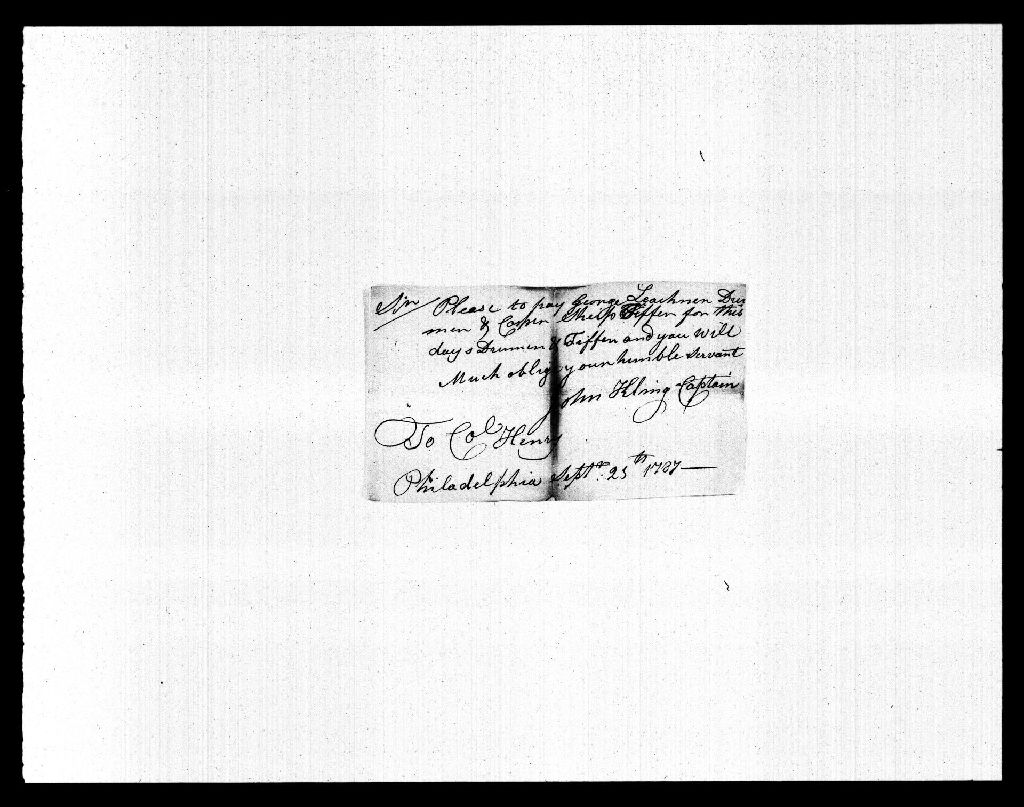 Sir Please to pay George Leachmen Dru
men & Casper Shelp Fiffen for this
days Drumen & Fiffen and you Will
Much oblig your humble Servant
John Kling Captain
To Col Henry
Philadelphia Septr. 25th 1787